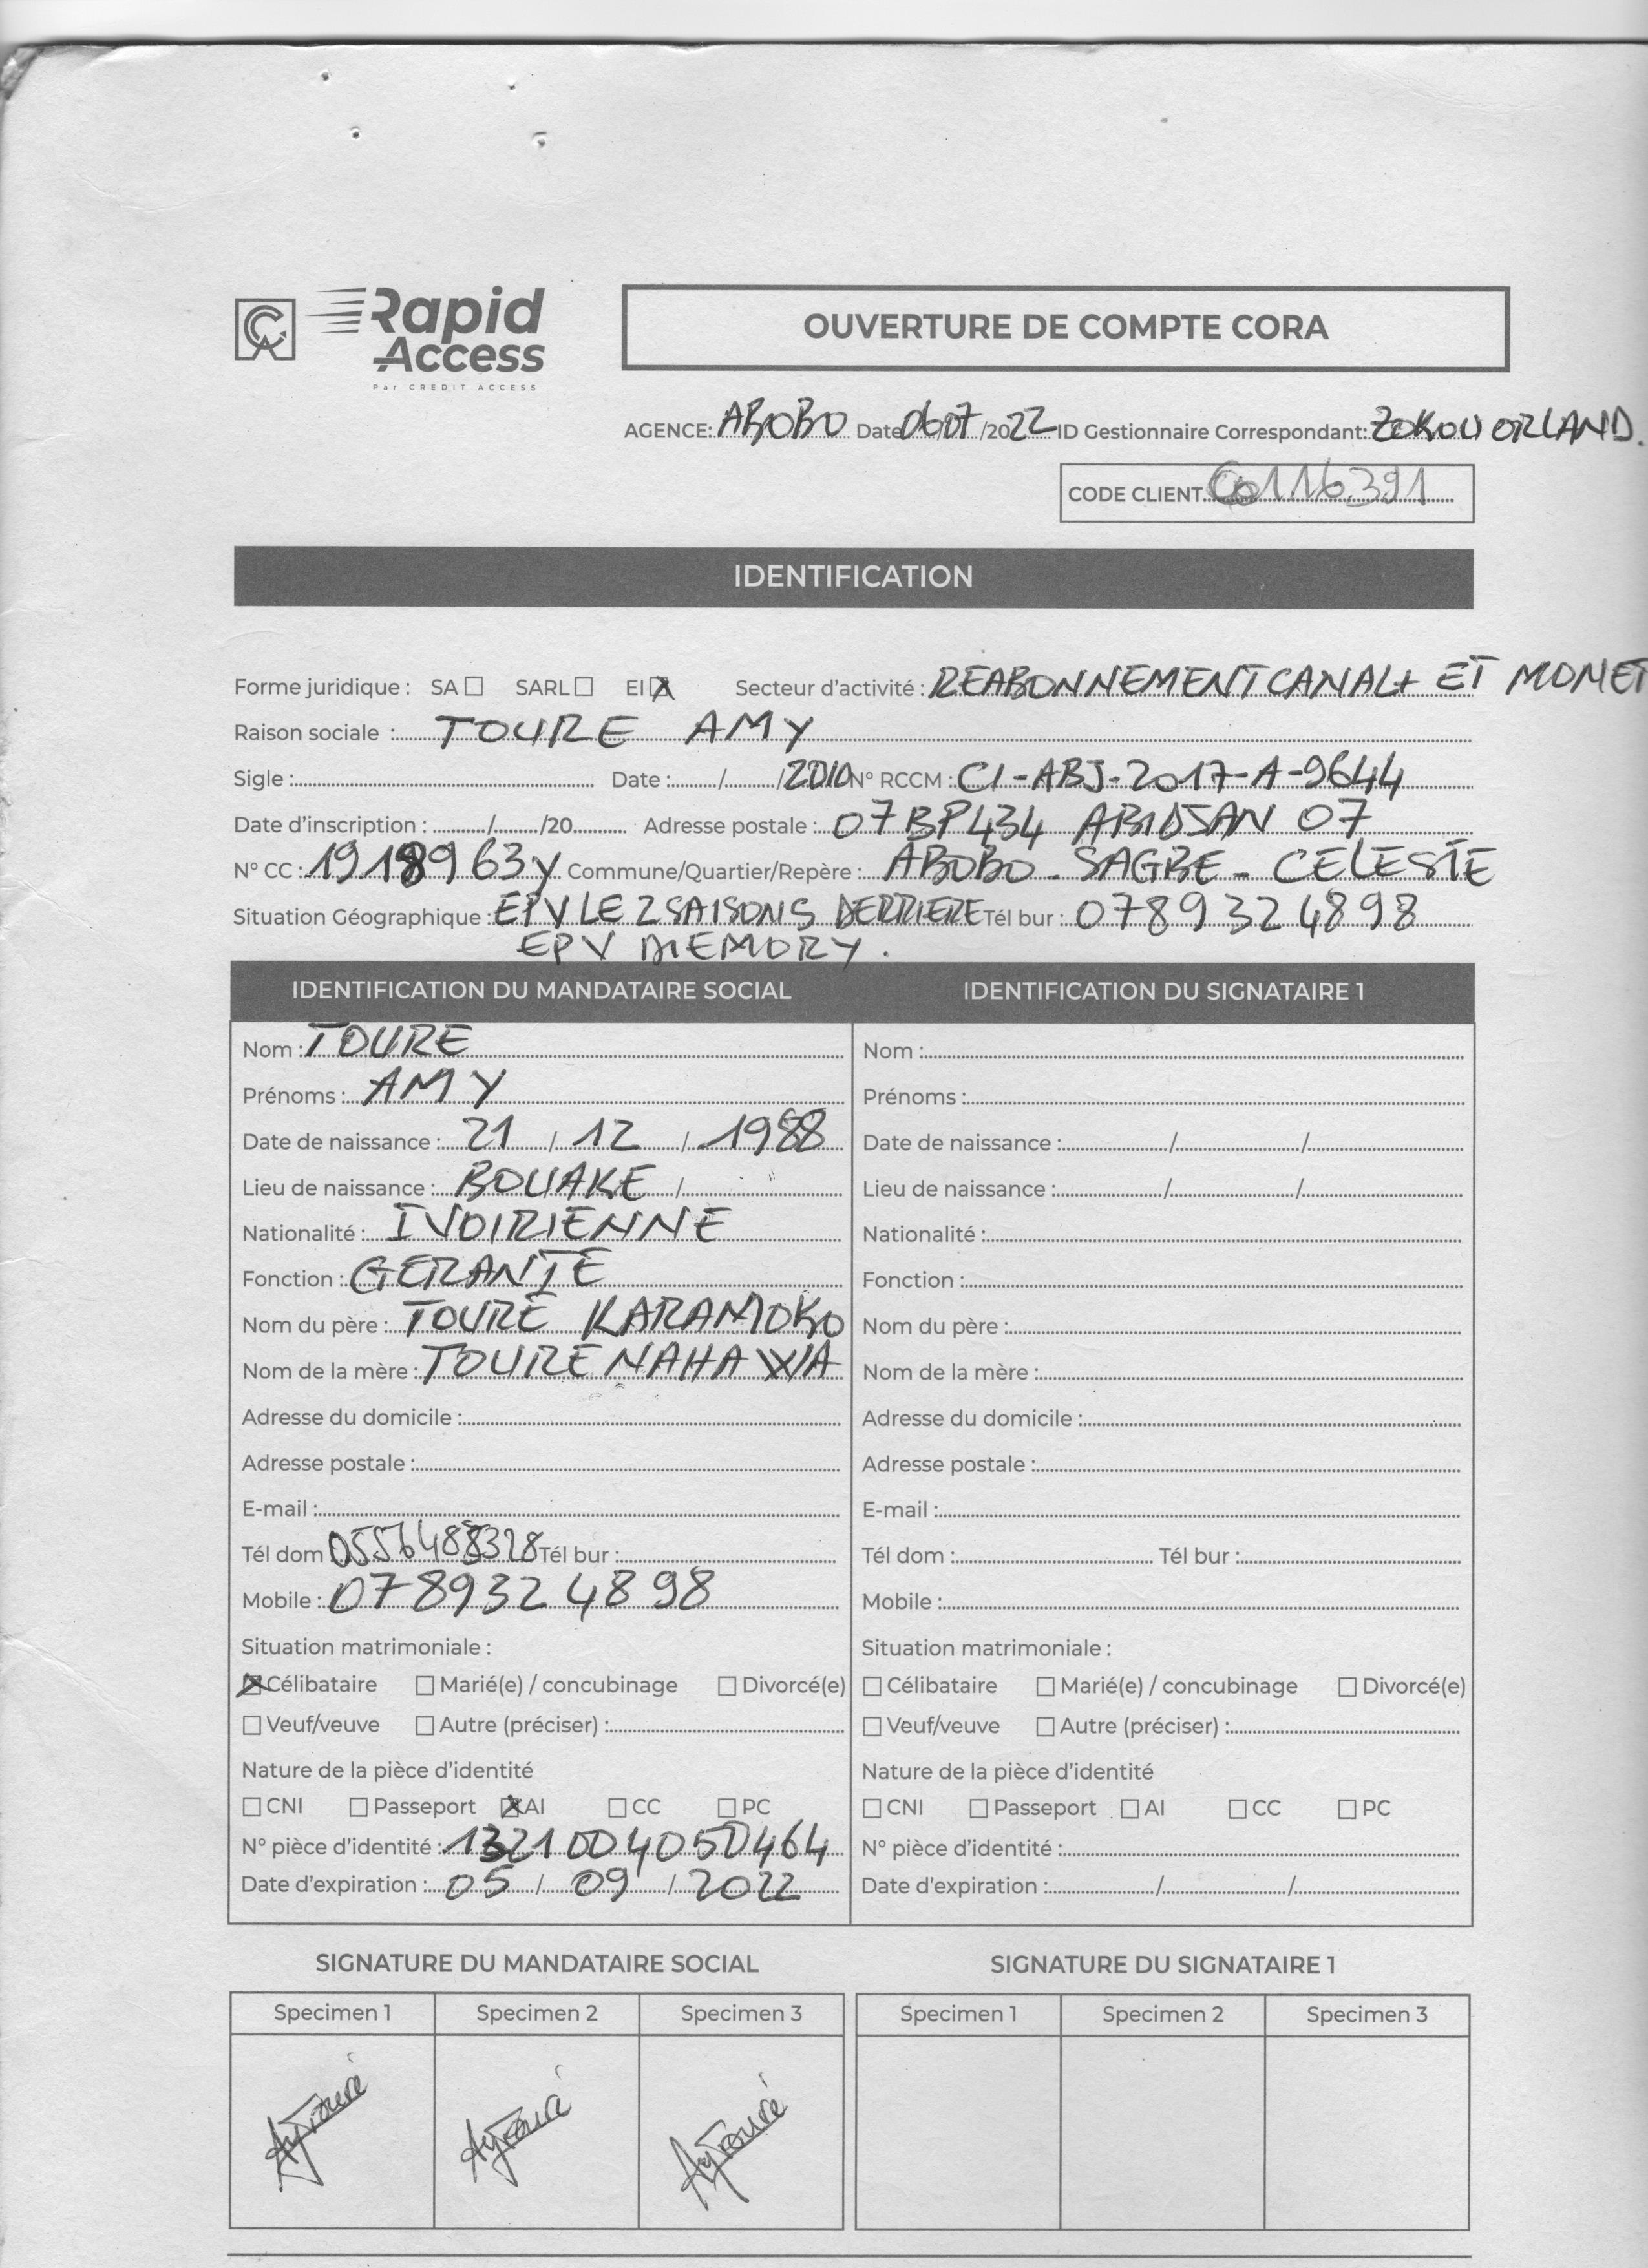 Rapid Access
Par CREDIT ACCESS
OUVERTURE DE COMPTE CORA
AGENCE: ABOBO Date 06/07/2022 ID Gestionnaire Correspondant: ZOKOU ORLAND.
CODE CLIENT C0116391
IDENTIFICATION
Forme juridique : SA ☐ SARL ☐ EI ☒ Secteur d'activité : REABONNEMENT CANAL+ ET MONET
Raison sociale : TOURE AMY
Sigle : Date : / /2010 N° RCCM : CI-ABJ-2017-A-9644
Date d'inscription : / /20 Adresse postale : 07 BP 434 ABIDJAN 07
N° CC : 1918963Y Commune/Quartier/Repère : ABOBO - SAGBE - CELESTE
Situation Géographique : EPV LE 2 SAISONS DERRIERE Tél bur : 0789324898
EPV MEMORY.
IDENTIFICATION DU MANDATAIRE SOCIAL IDENTIFICATION DU SIGNATAIRE 1
Nom : TOURE Nom :
Prénoms : AMY Prénoms :
Date de naissance : 21 / 12 / 1988 Date de naissance : / /
Lieu de naissance : BOUAKE / Lieu de naissance : / /
Nationalité : IVOIRIENNE Nationalité :
Fonction : GERANTE Fonction :
Nom du père : TOURE KARAMOKO Nom du père :
Nom de la mère : TOURE NAHAWA Nom de la mère :
Adresse du domicile : Adresse du domicile :
Adresse postale : Adresse postale :
E-mail : E-mail :
Tél dom 0556488328 Tél bur : Tél dom : Tél bur :
Mobile : 0789324898 Mobile :
Situation matrimoniale : Situation matrimoniale :
☒ Célibataire ☐ Marié(e) / concubinage ☐ Divorcé(e) ☐ Célibataire ☐ Marié(e) / concubinage ☐ Divorcé(e)
☐ Veuf/veuve ☐ Autre (préciser) : ☐ Veuf/veuve ☐ Autre (préciser) :
Nature de la pièce d'identité Nature de la pièce d'identité
☐ CNI ☐ Passeport ☒ AI ☐ CC ☐ PC ☐ CNI ☐ Passeport ☐ AI ☐ CC ☐ PC
N° pièce d'identité : 1321004050464 N° pièce d'identité :
Date d'expiration : 05 / 09 / 2022 Date d'expiration : / /
SIGNATURE DU MANDATAIRE SOCIAL SIGNATURE DU SIGNATAIRE 1
Specimen 1 Specimen 2 Specimen 3 Specimen 1 Specimen 2 Specimen 3
AyTouré AyTouré AyTouré